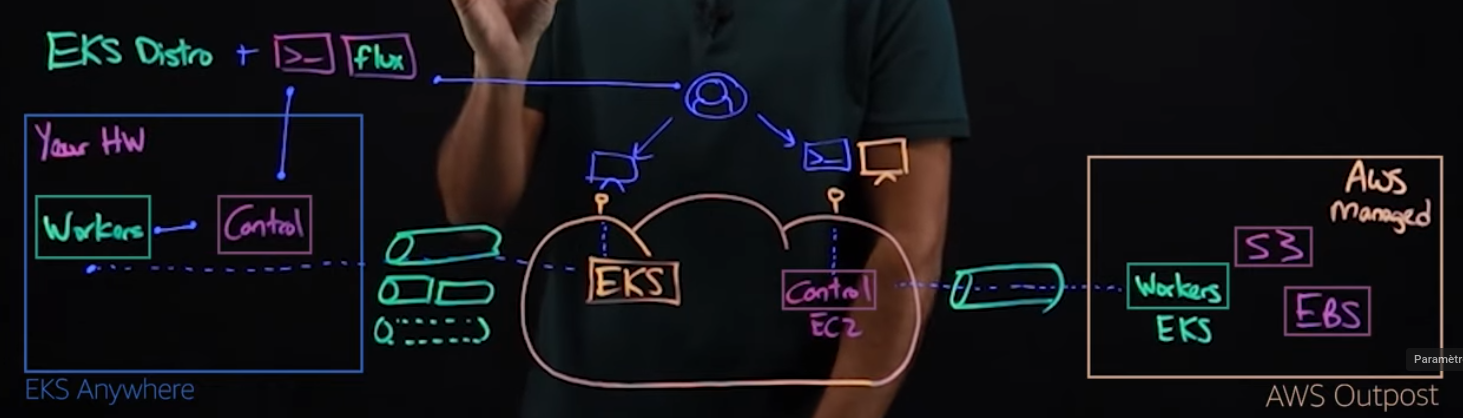 EKS Distro + >_ flux
Your HW
Workers
Control
EKS Anywhere
>_
EKS
Control
EC2
AWS
Managed
S3
Workers
EKS
EBS
AWS Outpost
Paramètr